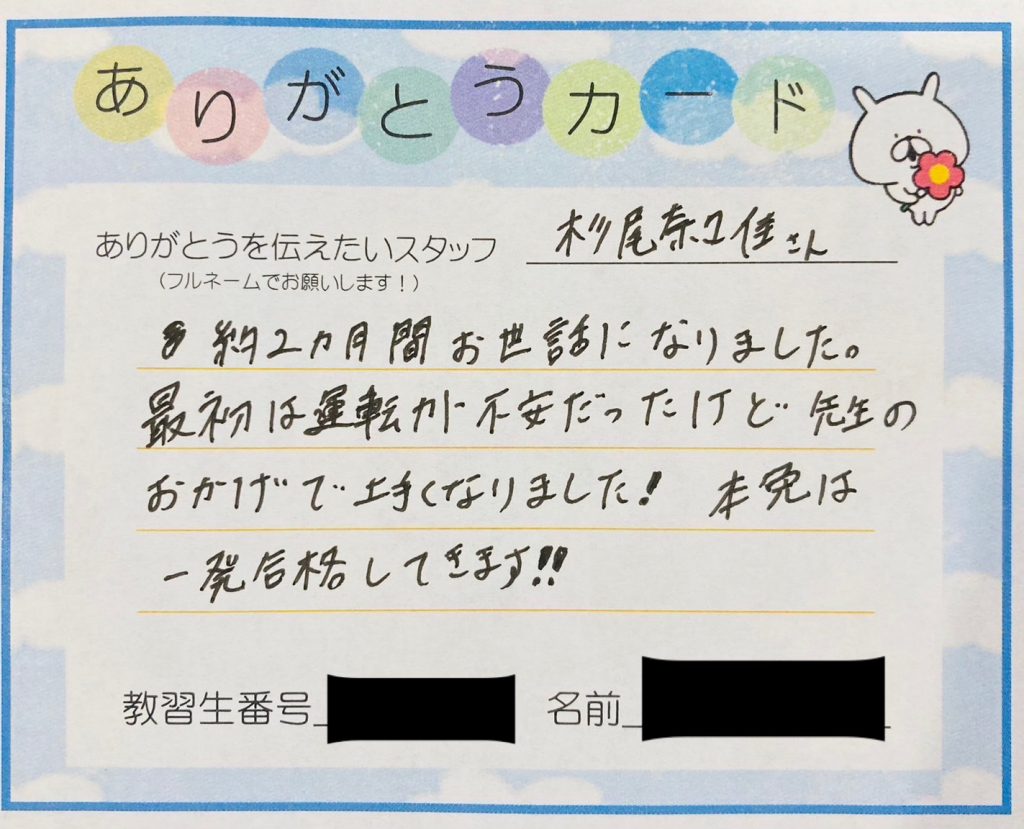 ありがとうカード
ありがとうを伝えたいスタッフ 杉尾奈々佳さん
(フルネームでお願いします!)
約2カ月間お世話になりました。
最初は運転が不安だったけど先生の
おかげで上手くなりました! 本免は
一発合格してきます!!
教習生番号 名前